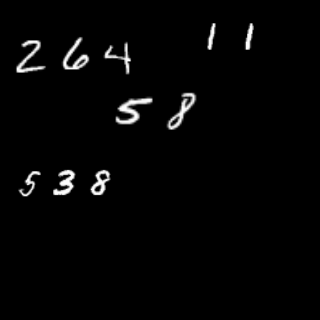 264 11
58
538